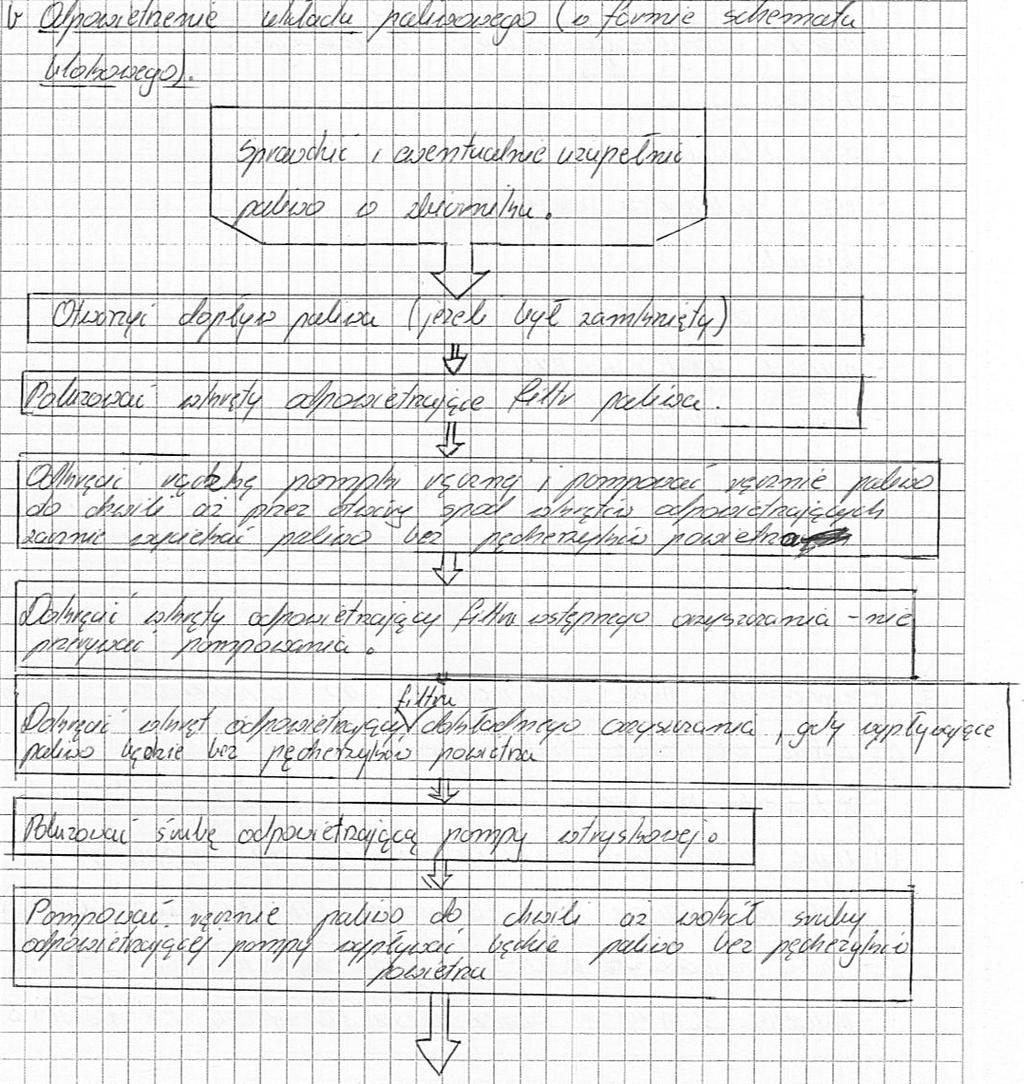 Odpowietrzenie układu paliwowego (w formie schematu
blokowego).
Sprawdzić i ewentualnie uzupełnić
paliwo w zbiorniku.
Otworzyć dopływ paliwa (jeżeli był zamknięty)
Poluzować wkręty odpowietrzające filtr paliwa.
Odkręcić rączkę pompki ręcznej i pompować ręcznie paliwo
do chwili aż przez otwory spod wkrętów odpowietrzających
zacznie wyciekać paliwo bez pęcherzyków powietrza
Dokręcić wkręty odpowietrzający filtra wstępnego oczyszczania - nie
przerywać pompowania.
filtru
Dokręcić wkręt odpowietrzający dokładnego oczyszczania, gdy wypływające
paliwo będzie bez pęcherzyków powietrza
Poluzować śrubę odpowietrzającą pompy wtryskowej.
Pompować ręcznie paliwo do chwili aż wokół śruby
odpowietrzającej pompy wypływać będzie paliwo bez pęcherzyków
powietrza